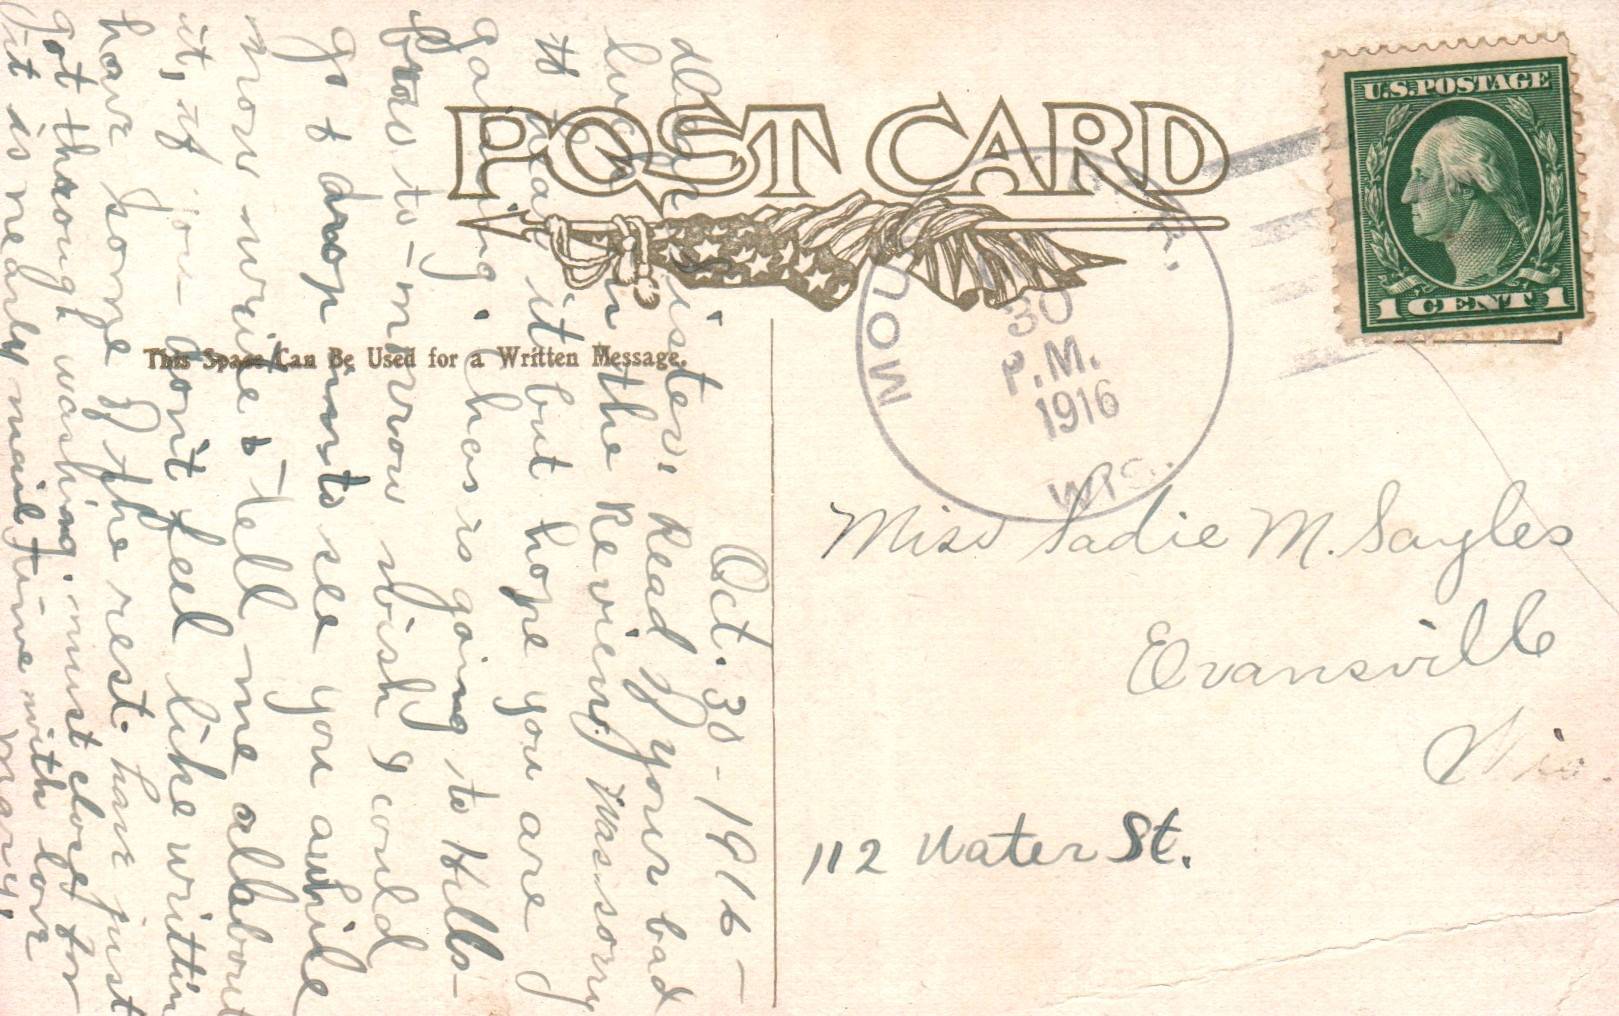 POST CARD
This Space Can Be Used for a Written Message.
U.S. POSTAGE
1 CENT 1
30
P.M.
1916
WIS.
Oct. 30 - 1916 -
Dear sister: Read of your bad
luck in the Review. Was sorry
to hear it but hope you are
gaining. Chas is going to Hills-
boro to-morrow wish I could
go & drop in to see you awhile
now write & tell me all about
it, if you don't feel like writtin
have some of the rest. have just
got through washing. must close for
it is nearly mail time with love
Mary.
Miss Sadie M. Sayles
Evansville
Wis.
112 Water St.